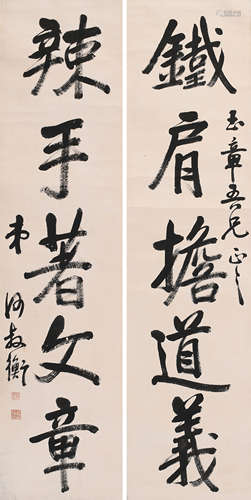 鐵肩擔道義
玉章吾兄正之
辣手著文章
弟何叔衡